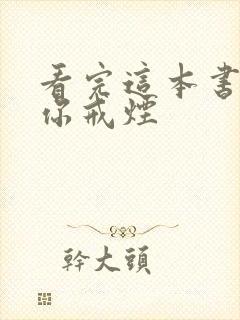 看完這本書
你戒煙
幹大頭